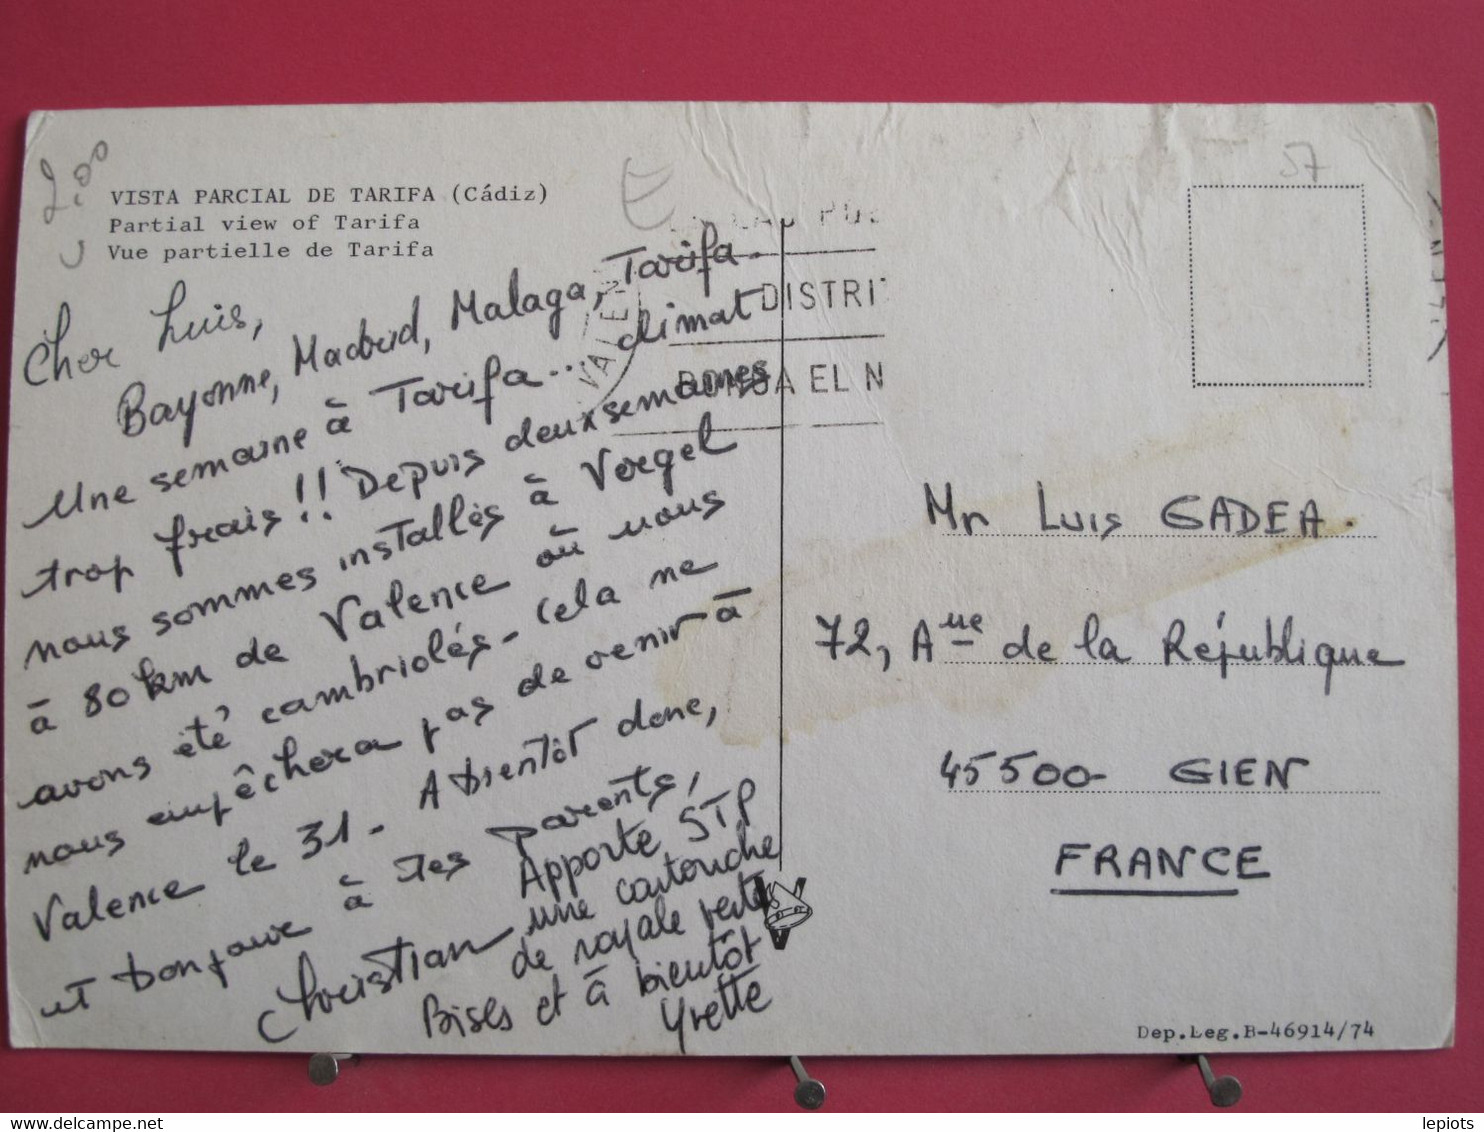 2.00
VISTA PARCIAL DE TARIFA (Cádiz)
Partial view of Tarifa
Vue partielle de Tarifa
E
57
VALEN
DISTRI
EL N
Cher Luis,
Bayonne, Madrid, Malaga, Tarifa.
Une semaine à Tarifa... climat
trop frais!! Depuis deux semaines
nous sommes installés à Vergel
à 80 km de Valence où nous
avons été cambriolés - cela ne
nous empêchera pas de venir à
Valence le 31 - A bientôt donc,
et bonjour à tes parents,
Christian
Apporte STP
une cartouche
de royale verte
Bises et à bientôt
Yvette
Mr Luis GADEA.
72, Aue de la République
45500 - GIEN
FRANCE
Dep.Leg.B-46914/74
lepiots